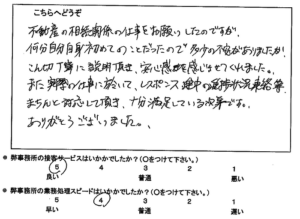 こちらへどうぞ
不動産の相続関係の仕事をお願いしたのですが、
何分自分自身初めてのことだったので多少の不安がありましたが、
こんせつ丁寧に説明頂き、安心感を感じさせてくれました。
また実際の仕事に於いて、レスポンス 途中の進捗状況連絡等
きちんと対応して頂き、十分満足している次第です。
ありがとうございました。
● 弊事務所の接客サービスはいかがでしたか?(○をつけて下さい。)
5 4 3 2 1
良い 普通 悪い
● 弊事務所の業務処理スピードはいかがでしたか?(○をつけて下さい。)
5 4 3 2 1
早い 普通 遅い